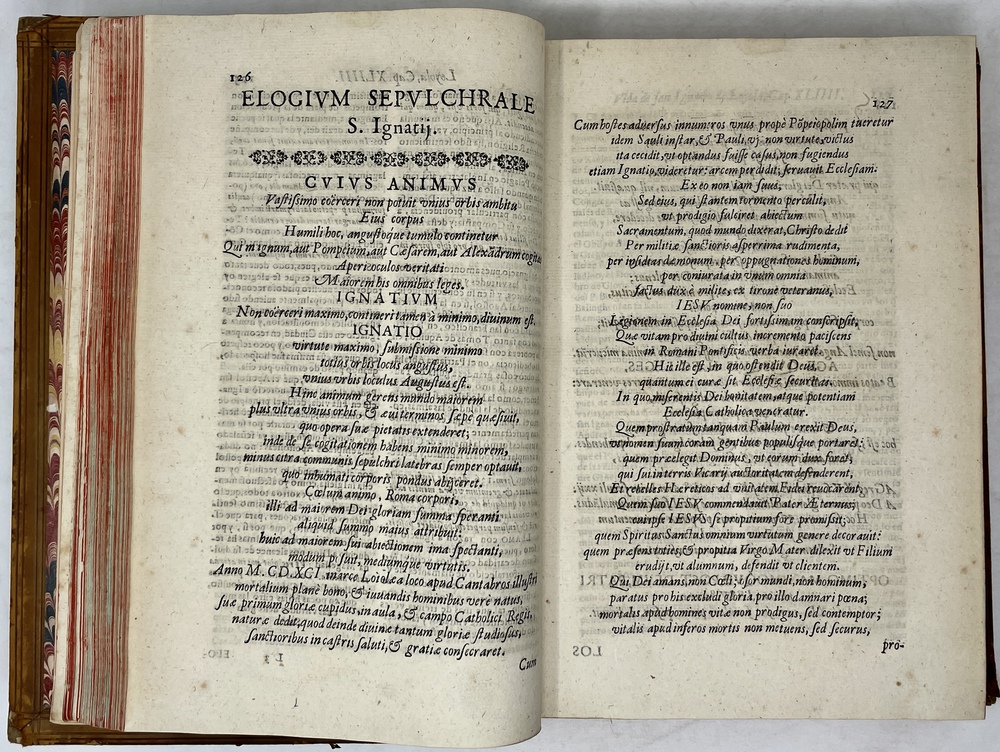 126
ELOGIVM SEPVLCHRALE
S. Ignatij.
CVIVS ANIMVS
Vastissimo coërceri non potuit vnius orbis ambitu
Eius corpus
Humili hoc, angustoque tumulo continetur
Qui magnum, aut Pompeium, aut Cæsarem, aut Alexādrum cogitas
Aperi oculos veritati
Maiorem his omnibus leges.
IGNATIVM
Non coërceri maximo, contineri tamen à minimo, diuinum est.
IGNATIO
virtute maximo, submissione minimo
totius orbis locus angustus,
vnius vrbis loculus Augustus est.
Hinc animum gerens mundo maiorem
plus vltra vnius orbis, & æui terminos sæpe quæsiuit,
quo opera suæ pietatis extenderet;
inde de se cogitationem habens minimo minorem,
minus citra communis sepulchri latebras semper optauit,
quo inhumati corporis pondus abijceret.
Cœlum animo, Roma corpori,
illi ad maiorem Dei gloriam summa speranti
aliquid summo maius attribuit:
huic ad maiorem sui abiectionem ima spectanti,
modum posuit, mediumque virtutis.
Anno M. CD. XCI. in arce Loiolæa loco apud Cantabros illustri
mortalium planè bono, & iuuandis hominibus verè natus,
suæ primum gloriæ cupidus, in aula, & campo Catholici Regis,
naturæ dedit, quod deinde diuinæ tantum gloriæ studiosus,
sanctioribus in castris saluti, & gratiæ consecraret.
Cum
127
Cum hostes aduersus innumeros vnus propè Pōpeiopolim tueretur
idem Sauli instar, & Pauli, vi non virtute victus
ita cecidit, vt optandus fuisse casus, non fugiendus
etiam Ignatio, videretur: arcem perdidit, seruauit Ecclesiam:
Ex eo non iam suus,
Sed eius, qui stantem tormento perculit,
vt prodigio fulciret abiectum
Sacramentum, quod mundo dixerat, Christo dedit
Per militiæ sanctioris asperrima rudimenta,
per insidias dæmonum, per oppugnationes hominum,
per coniurata in vnum omnia
factus dux è milite, ex tirone veteranus,
IESV nomine, non suo
Legionem in Ecclesia Dei fortissimam conscripsit,
Quæ vitam pro diuini cultus incremento paciscens
in Romani Pontificis verba iuraret.
Hic ille est, in quo ostendit Deus,
quantum ei curæ sit Ecclesiæ securitas.
In quo miserentis Dei bonitatem, atque potentiam
Ecclesia Catholica veneratur.
Quem prostratum tanquam Paulum erexit Deus,
vt nomen suum coram gentibus populisque portaret;
quem præelegit Dominus, vt eorum dux foret,
qui sui in terris Vicarij auctoritatem defenderent,
Et rebelles Hæreticos ad vnitatem Fidei reuocarent;
Quem suo IESV commendauit Pater Æternus;
cui ipse IESVS se propitium fore promisit;
quem Spiritus Sanctus omnium virtutum genere decorauit:
quem præsens toties, & propitia Virgo Mater dilexit vt Filium
erudijt, vt alumnum, defendit vt clientem.
Qui Dei amans, non Cœli; osor mundi, non hominum,
paratus pro his excludi gloria, pro illo damnari pœna;
mortalis apud homines vitæ non prodigus, sed contemptor;
vitalis apud inferos mortis non metuens, sed securus,
pro-